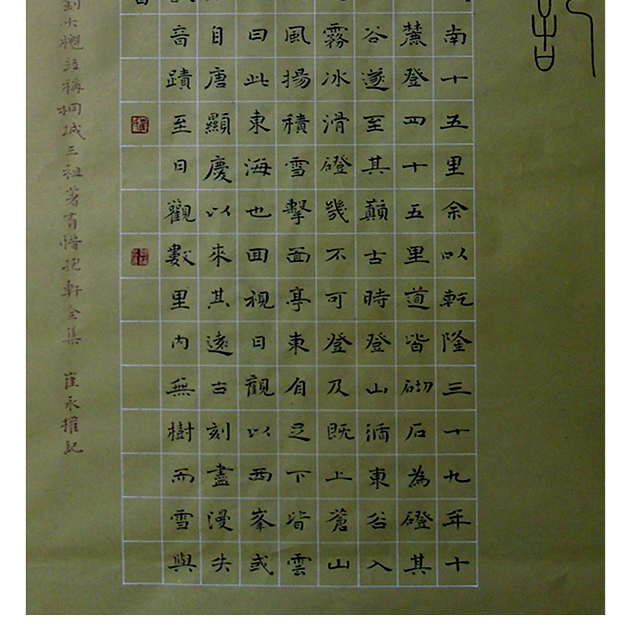 南十五里余以乾隆三十九年十
麓登四十五里道皆砌石為磴其
谷遂至其巔古時登山循東谷入
霧冰滑磴幾不可登及既上蒼山
風揚積雪擊面亭東自足下皆雲
曰此東海也回視日觀以西峯或
自唐顯慶以來其遠古刻盡漫失
音蹟至日觀數里內無樹而雪與
劉大櫆並稱桐城三祖著有惜抱軒全集 崔永擢記